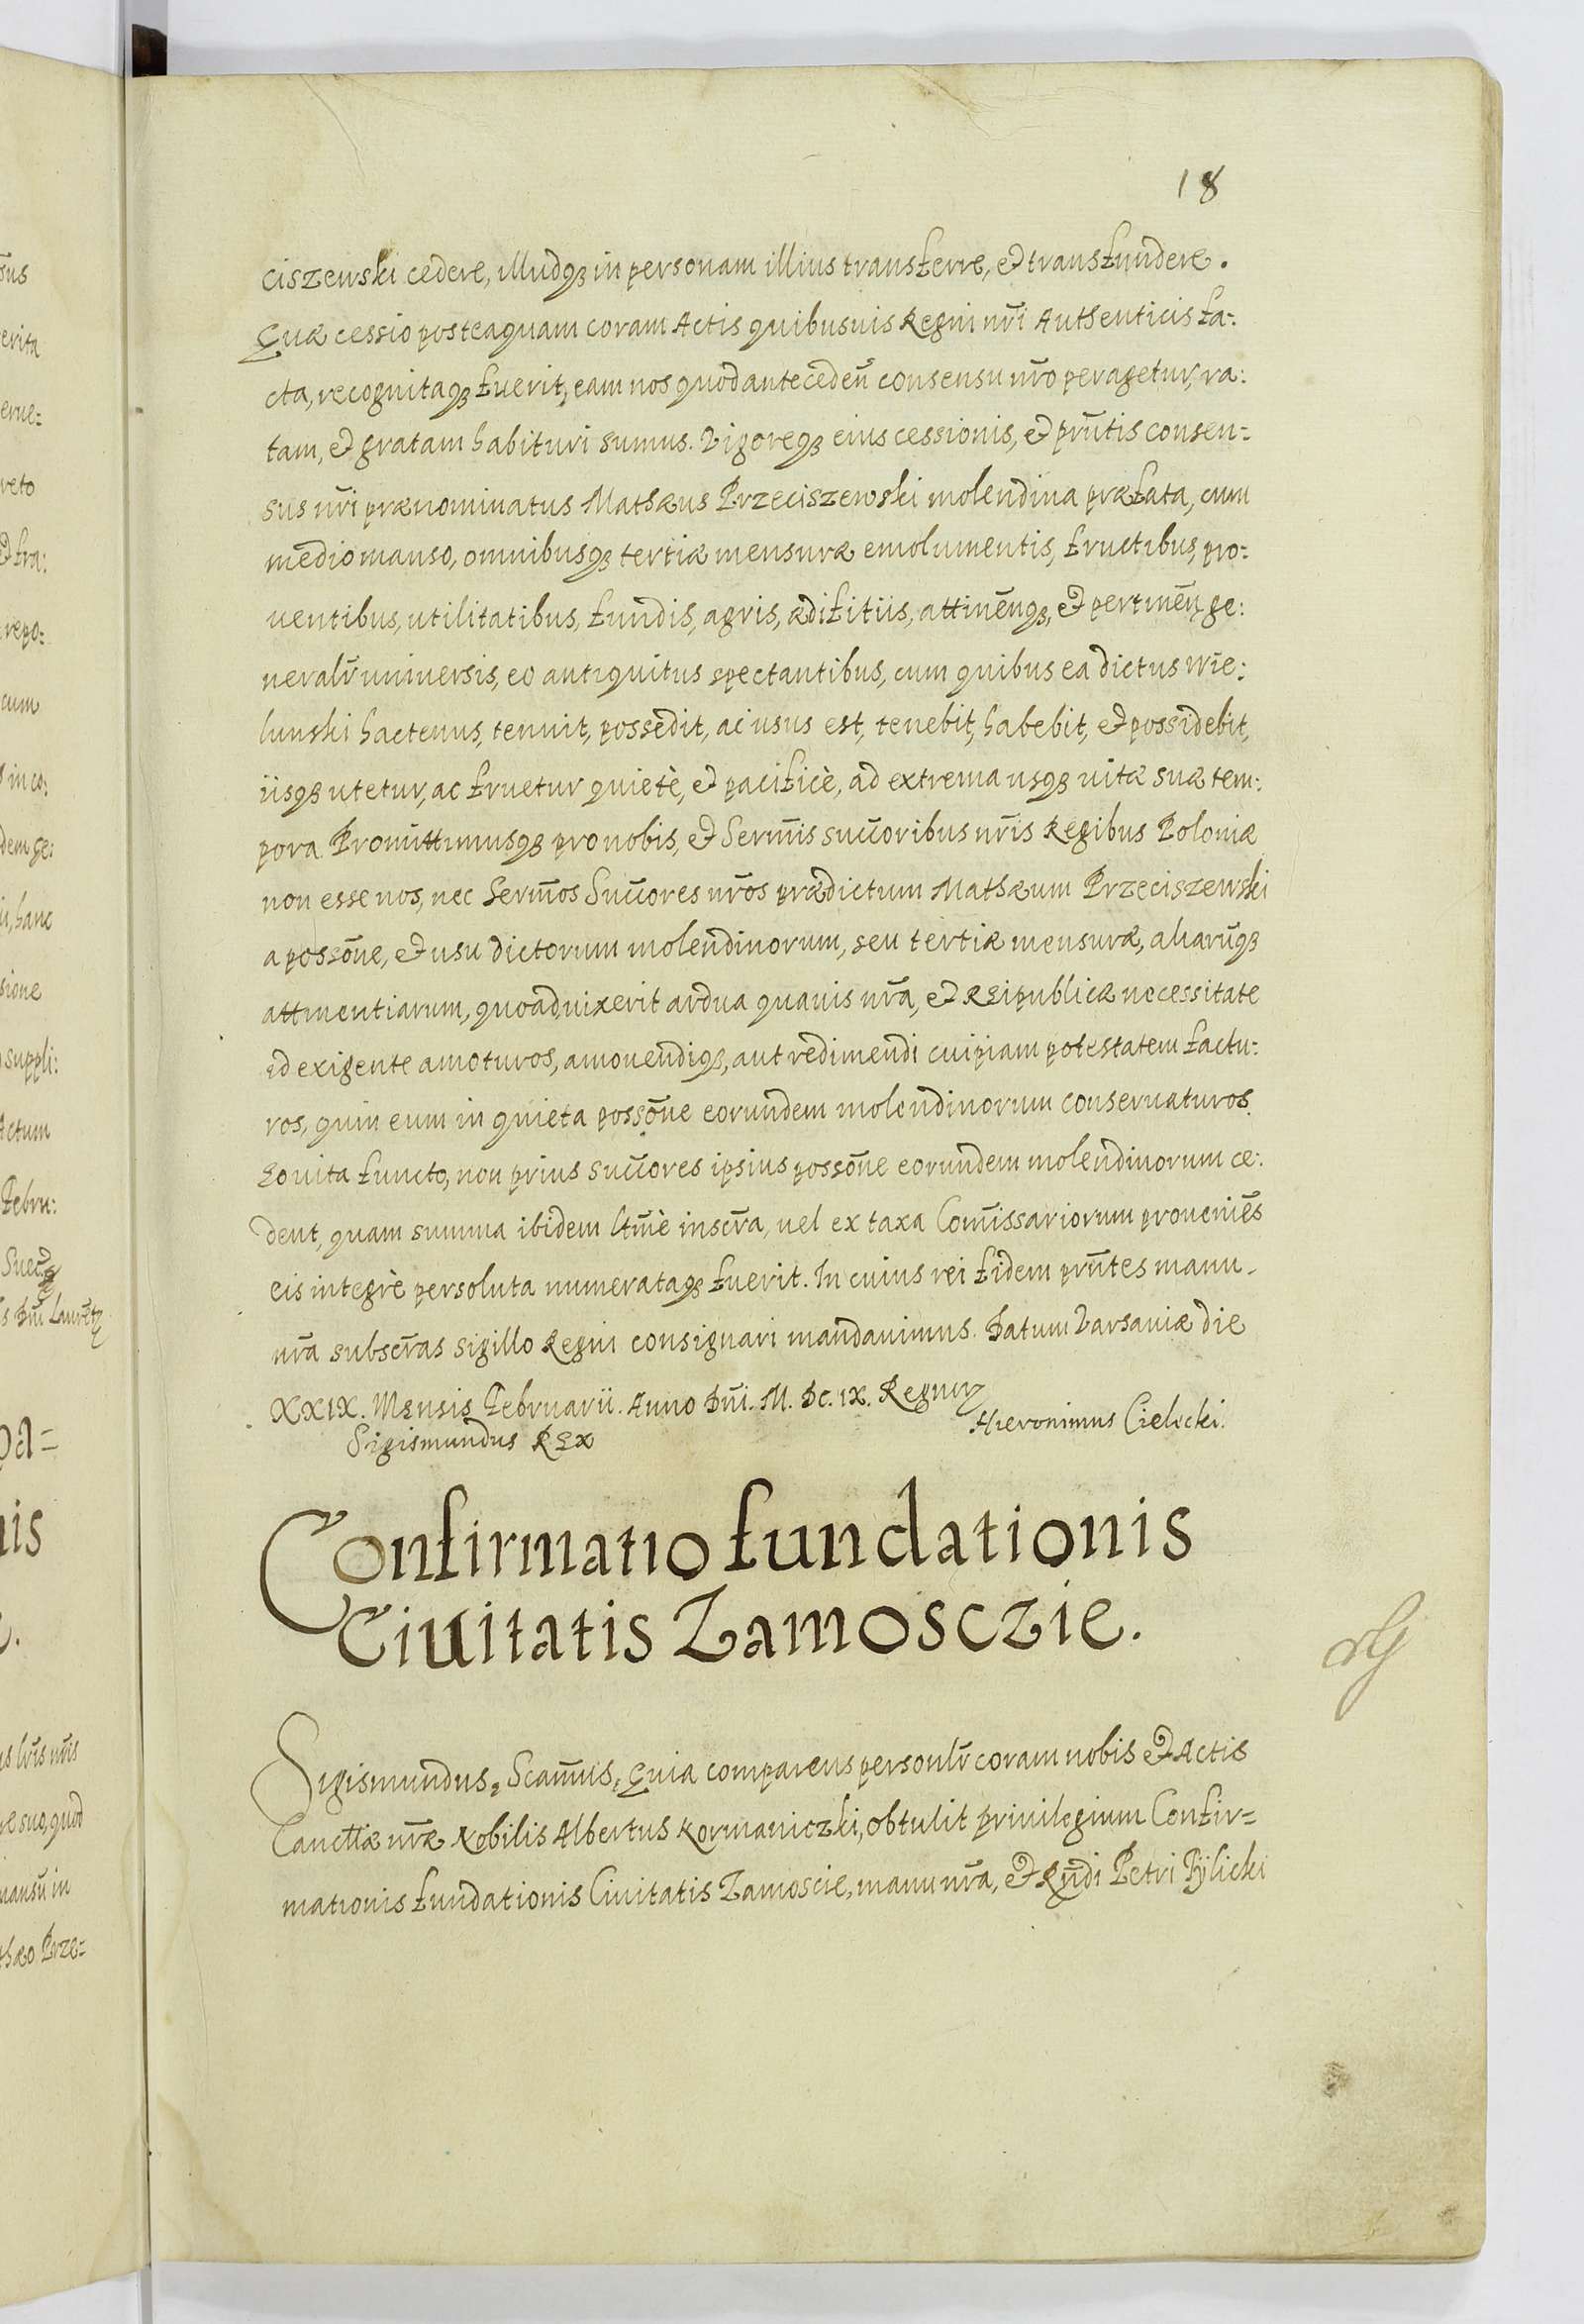 18
ciszewski cedere, illudqȝ in personam illius transferre, et transfundere.
Quæ cessio posteaquam coram Actis quibusuis Regni nr̃i Authenticis fa:
cta, recognitaqȝ fuerit, eam nos quod antecedeñ consensu nr̃o peragetur, ra:
tam, et gratam habituri sumus. Vigoreqȝ eius cessionis, et prñtis consen:
sus nr̃i prænominatus Mathæus Przeciszewski molendina præfata, cum
medio manso, omnibusqȝ tertiæ mensuræ emolumentis, fructibus, pro:
uentibus, utilitatibus, fundis, agris, ædifitiis, attineñqȝ, et pertineñ, ge:
neralr̃ uniuersis, eo antiquitus spectantibus, cum quibus ea dictus Wie:
lunski hactenus, tenuit, possedit, ac usus est, tenebit, habebit, et possidebit,
iisqȝ utetur, ac fruetur quietè, et pacificè, ad extrema usqȝ uitæ suæ tem:
pora. Promittimusqȝ pro nobis, et Serm̃is succ̃oribus nr̃is Regibus Poloniæ
non esse nos, nec Serm̃os Succ̃ores nr̃os prædictum Mathæum Przeciszewski
a possõne, et usu dictorum molendinorum, seu tertiæ mensuræ, aliarũqȝ
attinentiarum, quoad uixerit ardua quauis nr̃a, et Reipublicæ necessitate
id exigente amoturos, amouendiqȝ, aut redimendi cuipiam potestatem factu:
ros, quin eum in quieta possõne eorundem molendinorum conseruaturos.
Eo uita functo, non prius succ̃ores ipsius possõne eorundem molendinorum ce:
dent, quam summa ibidem ltm̃è inscr̃a, uel ex taxa Com̃issariorum proueniẽs
eis integrè persoluta numerataqȝ fuerit. In cuius rei fidem prñtes manu
nr̃a subscr̃as sigillo Regni consignari mandauimus. Datum Varsauiæ die
XXIX. Mensis Februarii. Anno Dñi. M. DC. IX. Regnorȝ
Sigismundus Rex Hieronimus Cielecki.
Confirmatio fundationis
Ciuitatis Zamosczie.
Sigismundus, Scam̃us, Quia comparens personlr̃ coram nobis et Actis
Canclł̃æ nr̃æ Nobilis Albertus Kormaniczki, obtulit priuilegium Confir=
mationis fundationis Ciuitatis Zamoscie, manu nr̃a, et Rñdi Petri Tÿlicki